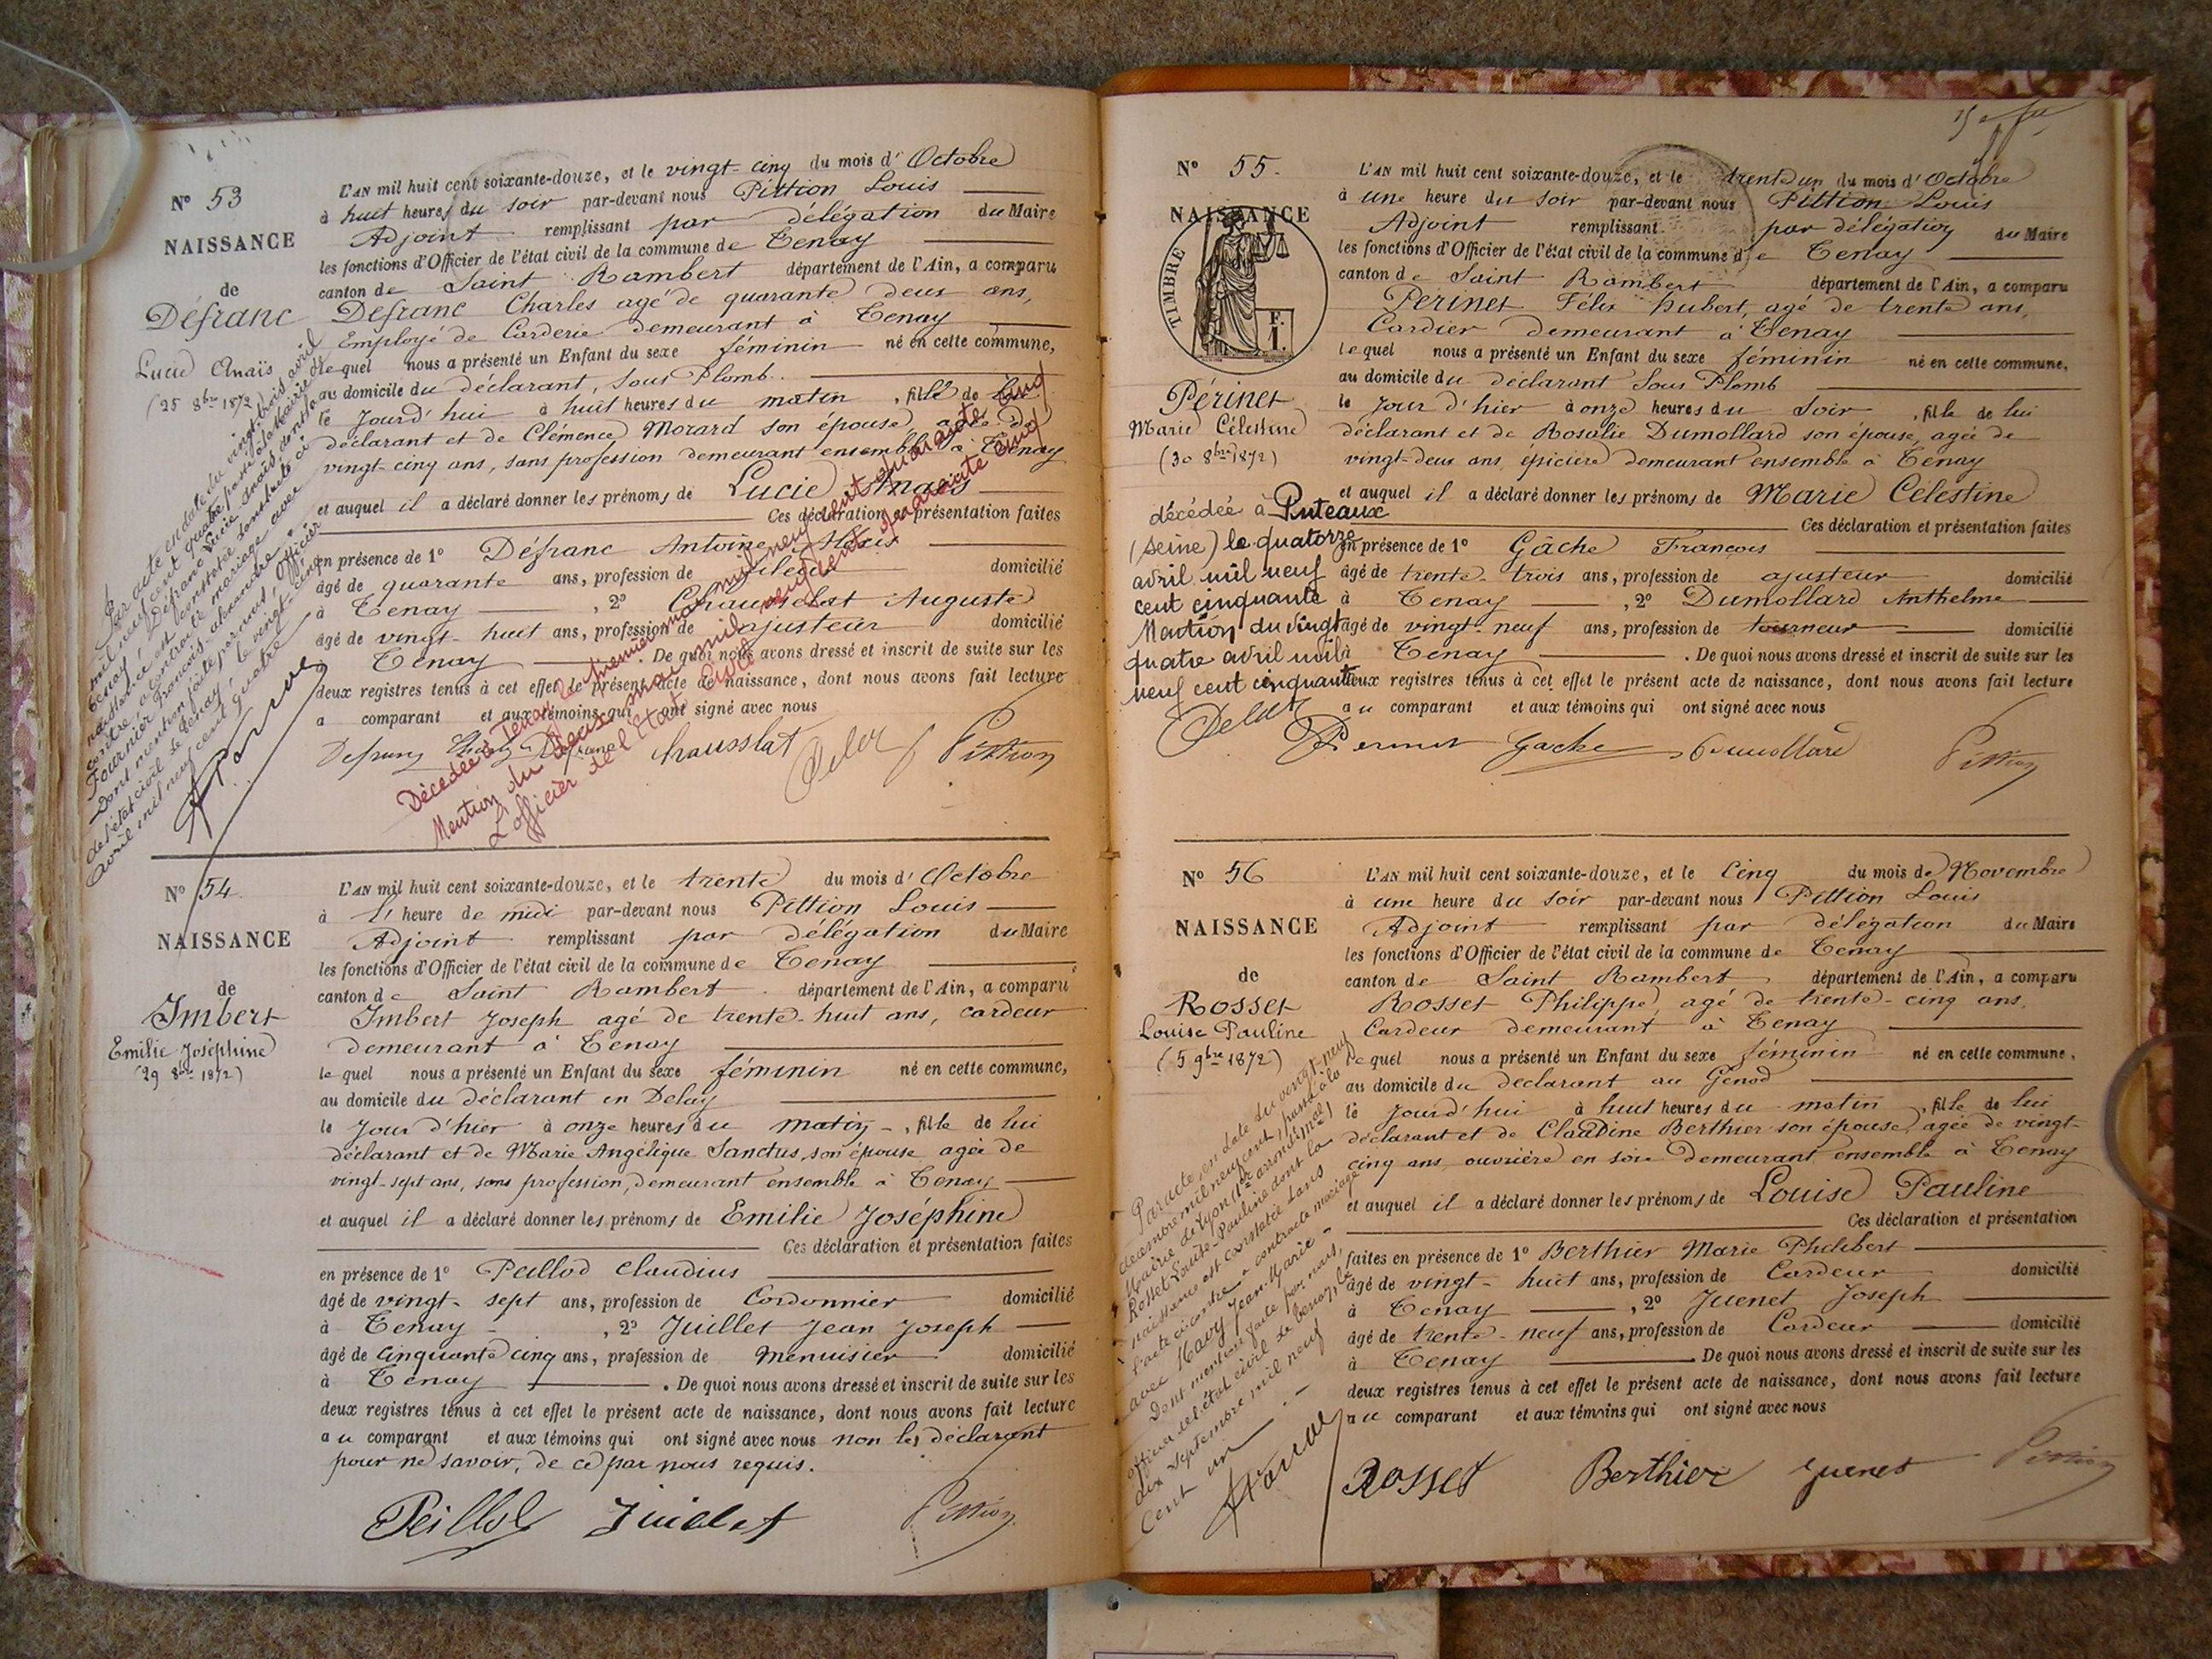 N° 53
NAISSANCE
de
Défranc
Lucie Anaïs
(25 8bre 1872)
L'AN mil huit cent soixante-douze, et le vingt-cinq du mois d'Octobre
à huit heures du soir par-devant nous Pittion Louis
Adjoint remplissant par délégation du Maire
les fonctions d'Officier de l'état civil de la commune de Tenay
canton de Saint Rambert département de l'Ain, a comparu
Défranc Charles agé de quarante deux ans,
Employé de Carderie demeurant à Tenay
lequel nous a présenté un Enfant du sexe féminin né en cette commune,
au domicile du déclarant, Sous Plomb.
le Jourd'hui à huit heures du matin, fille de lui
déclarant et de Clémence Morard son épouse, agée de
vingt-cinq ans, sans profession demeurant ensemble à Tenay
et auquel il a déclaré donner les prénoms de Lucie Anaïs
Ces déclaration et présentation faites
en présence de 1° Défranc Antoine
âgé de quarante ans, profession de domicilié
à Tenay, 2° Chausselat Auguste
âgé de vingt-huit ans, profession de ajusteur domicilié
à Tenay. De quoi nous avons dressé et inscrit de suite sur les
deux registres tenus à cet effet le présent acte de naissance, dont nous avons fait lecture
a comparant et aux témoins qui ont signé avec nous
Chausslat Pittion
Par acte en date du vingt-trois avril
mil neuf cent quatre passé à la Mairie de
Tenay, Défranc Lucie Anaïs dont la
naissance est constatée dans l'acte ci
contre, a contracté mariage avec
Fournier François-Alexandre.
Dont mention faite par nous, Officier
de l'état civil de Tenay, le vingt-cinq
avril mil neuf cent quatre
Décédée à Tenay le premier mai mil neuf cent quarante cinq
Mention du deux mai mil neuf cent quarante cinq
L'officier de l'Etat Civil
N° 54
NAISSANCE
de
Imbert
Emilie Joséphine
(29 8bre 1872)
L'AN mil huit cent soixante-douze, et le trente du mois d'Octobre
à l' heure de midi par-devant nous Pittion Louis
Adjoint remplissant par délégation du Maire
les fonctions d'Officier de l'état civil de la commune de Tenay
canton de Saint Rambert département de l'Ain, a comparu
Imbert Joseph agé de trente-huit ans, cardeur
demeurant à Tenay
lequel nous a présenté un Enfant du sexe féminin né en cette commune,
au domicile du déclarant en Delay
le Jour d'hier à onze heures du matin, fille de lui
déclarant et de Marie Angélique Sanctus, son épouse agée de
vingt-sept ans, sans profession, demeurant ensemble à Tenay
et auquel il a déclaré donner les prénoms de Emilie Joséphine
Ces déclaration et présentation faites
en présence de 1° Peillod Claudius
âgé de vingt-sept ans, profession de Cordonnier domicilié
à Tenay, 2° Juillet Jean Joseph
âgé de Cinquante cinq ans, profession de Menuisier domicilié
à Tenay. De quoi nous avons dressé et inscrit de suite sur les
deux registres tenus à cet effet le présent acte de naissance, dont nous avons fait lecture
au comparant et aux témoins qui ont signé avec nous non le déclarant
pour ne savoir, de ce par nous requis.
Peillod Juillet Pittion
N° 55.
NAISSANCE
TIMBRE
F.
1.
Périnet
Marie Célestine
(30 8bre 1872)
L'AN mil huit cent soixante-douze, et le trente un du mois d'Octobre
à une heure du soir par-devant nous Pittion Louis
Adjoint remplissant par délégation du Maire
les fonctions d'Officier de l'état civil de la commune de Tenay
canton de Saint Rambert département de l'Ain, a comparu
Périnet Félix Hubert, agé de trente ans,
Cardier demeurant à Tenay
lequel nous a présenté un Enfant du sexe féminin né en cette commune,
au domicile du déclarant Sous Plomb
le Jour d'hier à onze heures du Soir, fille de lui
déclarant et de Rosalie Dumollard son épouse, agée de
vingt-deux ans, épicière demeurant ensemble à Tenay
et auquel il a déclaré donner les prénoms de Marie Célestine
Ces déclaration et présentation faites
en présence de 1° Gâche François
âgé de trente-trois ans, profession de ajusteur domicilié
à Tenay, 2° Dumollard Anthelme
âgé de vingt-neuf ans, profession de tourneur domicilié
à Tenay. De quoi nous avons dressé et inscrit de suite sur les
deux registres tenus à cet effet le présent acte de naissance, dont nous avons fait lecture
au comparant et aux témoins qui ont signé avec nous
Perinet Gache Dumollard Pittion
décédée à Puteaux
(Seine) le quatorze
avril mil neuf
cent cinquante
Mention du vingt
quatre avril mil
neuf cent cinquante
N° 56
NAISSANCE
de
Rosset
Louise Pauline
(5 9bre 1872)
L'AN mil huit cent soixante-douze, et le Cinq du mois de Novembre
à une heure du soir par-devant nous Pittion Louis
Adjoint remplissant par délégation du Maire
les fonctions d'Officier de l'état civil de la commune de Tenay
canton de Saint Rambert département de l'Ain, a comparu
Rosset Philippe, agé de trente-cinq ans,
Cardeur demeurant à Tenay
lequel nous a présenté un Enfant du sexe féminin né en cette commune,
au domicile du déclarant au Genod
le Jourd'hui à huit heures du matin, fille de lui
déclarant et de Claudine Berthier son épouse, agée de vingt-
cinq ans, ouvrière en soie demeurant ensemble à Tenay
et auquel il a déclaré donner les prénoms de Louise Pauline
Ces déclaration et présentation
faites en présence de 1° Berthier Marie Philibert
âgé de vingt-huit ans, profession de Cardeur domicilié
à Tenay, 2° Juenet Joseph
âgé de trente-neuf ans, profession de Cardeur domicilié
à Tenay. De quoi nous avons dressé et inscrit de suite sur les
deux registres tenus à cet effet le présent acte de naissance, dont nous avons fait lecture
au comparant et aux témoins qui ont signé avec nous
Rosset Berthier Juenet Pittion
Par acte en date du vingt-neuf
décembre mil neuf cent, passé à la
Mairie de Lyon (1er arrondimal)
Rosset Louise-Pauline dont la
naissance est constatée dans
l'acte ci contre a contracté mariage
avec Jean-Marie
Dont mention faite par nous,
officier de l'état civil de Tenay, le
dix Septembre mil neuf
Cent un